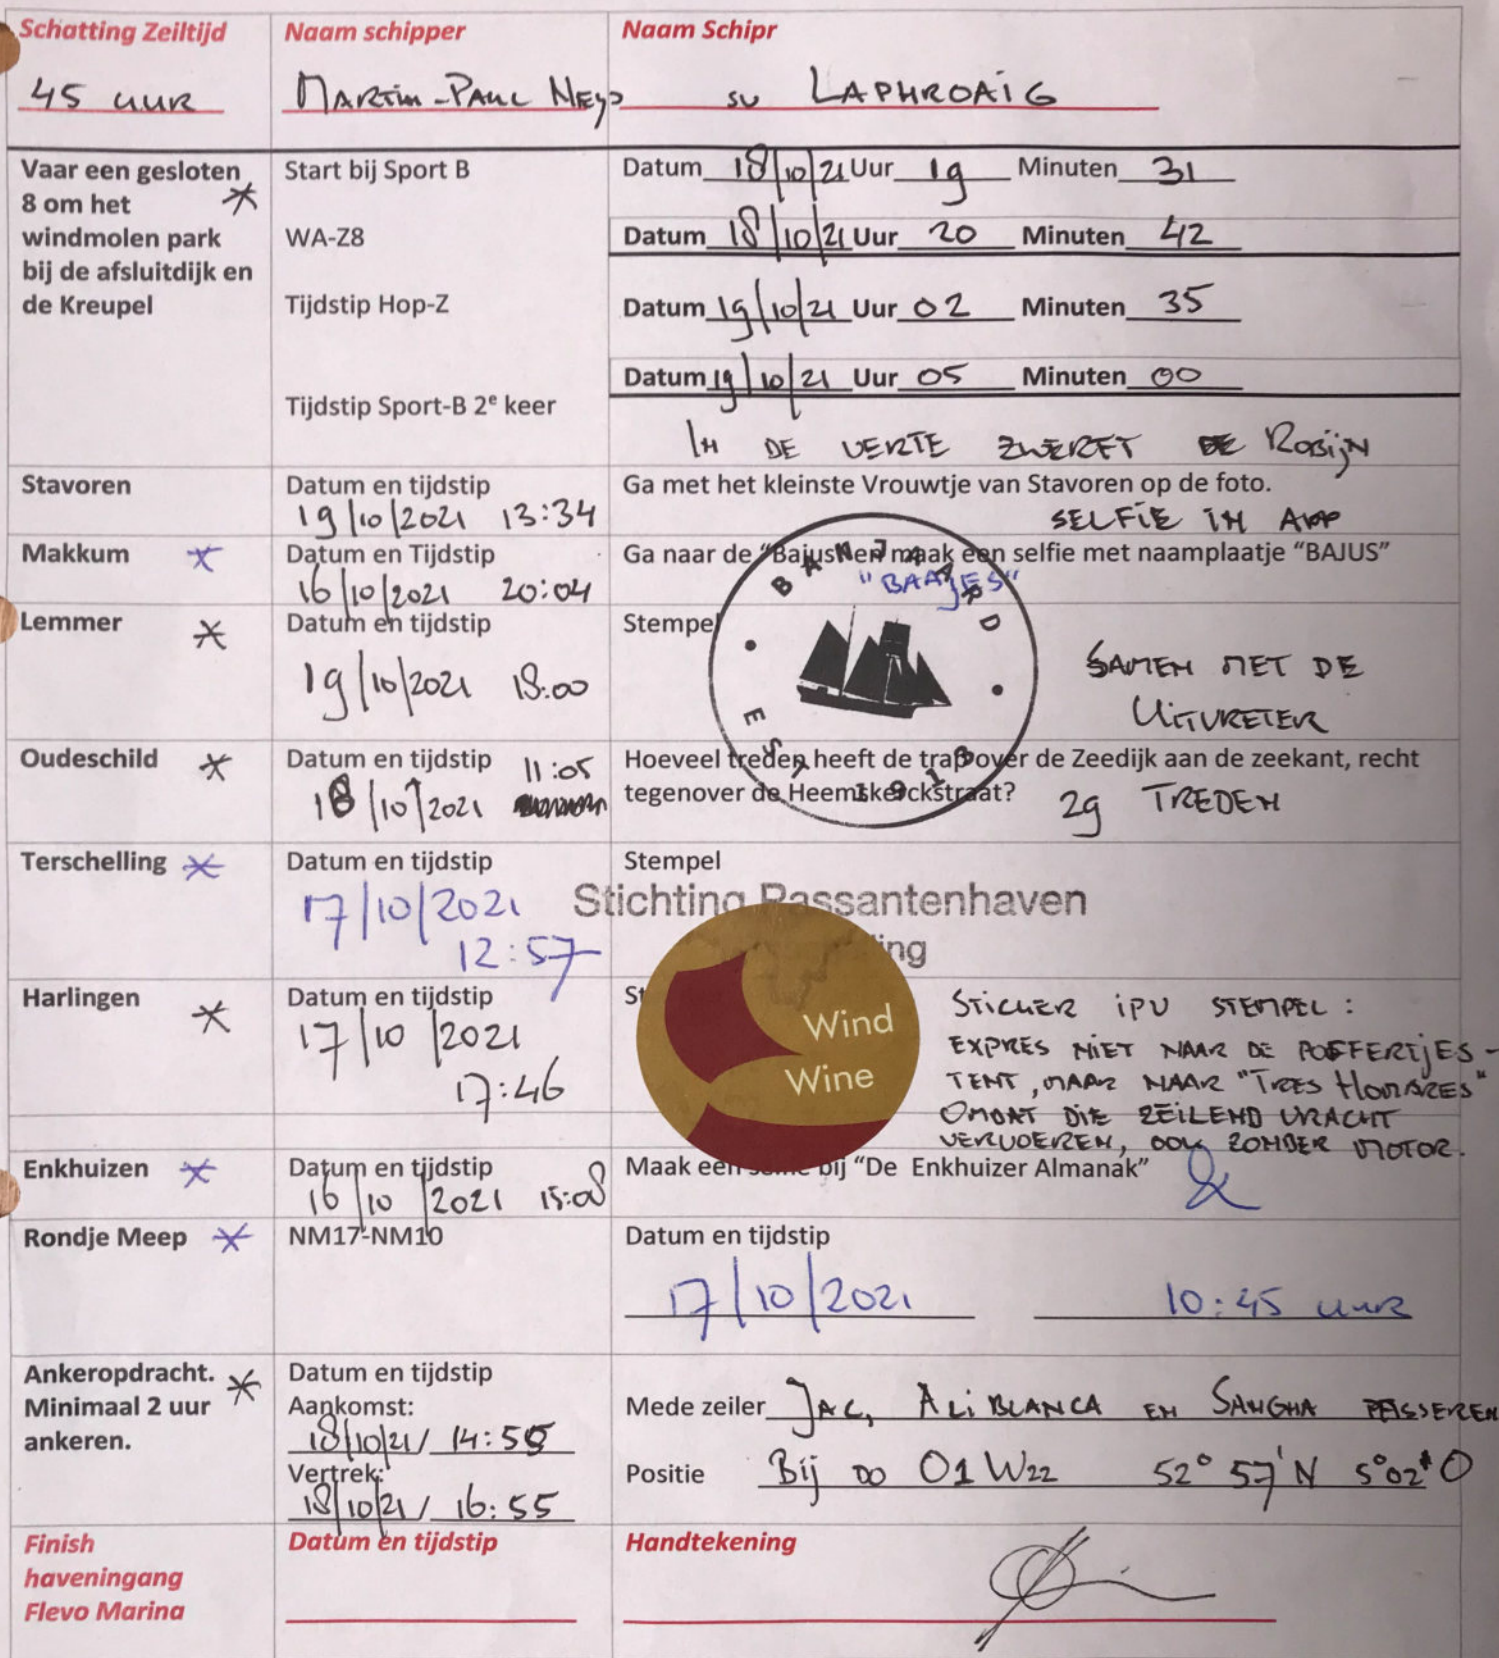 Schatting Zeiltijd
45 UUR
Naam schipper
MARTIN-PAUL NEYS
Naam Schipr
SV LAPHROAIG
Vaar een gesloten
8 om het
windmolen park
bij de afsluitdijk en
de Kreupel
Start bij Sport B
Datum 18/10/21 Uur 19 Minuten 31
WA-Z8
Datum 18/10/21 Uur 20 Minuten 42
Tijdstip Hop-Z
Datum 19/10/21 Uur 02 Minuten 35
Datum 19/10/21 Uur 05 Minuten 00
Tijdstip Sport-B 2e keer
IN DE VERTE ZWERFT DE ROBIJN
Stavoren
Datum en tijdstip
19/10/2021 13:34
Ga met het kleinste Vrouwtje van Stavoren op de foto.
SELFIE IN APP
Makkum
Datum en Tijdstip
16/10/2021 20:04
Ga naar de "Bajus" en maak een selfie met naamplaatje "BAJUS"
"BAAJES"
Lemmer
Datum en tijdstip
19/10/2021 18:00
Stempel
BANJAARD
EST 1913
SAMEN MET DE
UITVRETER
Oudeschild
Datum en tijdstip 11:05
18/10/2021
Hoeveel treden heeft de trap over de Zeedijk aan de zeekant, recht
tegenover de Heemskerckstraat?
29 TREDEN
Terschelling
Datum en tijdstip
17/10/2021
12:57
Stempel
Stichting Passantenhaven
Harlingen
Datum en tijdstip
17/10/2021
17:46
Wind
Wine
STICKER IPV STEMPEL:
EXPRES NIET NAAR DE POFFERTJES-
TENT, MAAR NAAR "TRES HOMBRES"
OMDAT DIE ZEILEND VRACHT
VERVOEREN, OOK ZONDER MOTOR.
Enkhuizen
Datum en tijdstip
16/10/2021 15:08
Maak een bij "De Enkhuizer Almanak"
Rondje Meep
NM17-NM10
Datum en tijdstip
17/10/2021 10:45 UUR
Ankeropdracht.
Minimaal 2 uur
ankeren.
Datum en tijdstip
Aankomst:
18/10/21/ 14:55
Vertrek:
18/10/21/ 16:55
Mede zeiler JAC, ALI BLANCA EN SANGHA
Positie Bij DO O1 W22 52° 57' N 5°02' O
Finish
haveningang
Flevo Marina
Datum en tijdstip
Handtekening